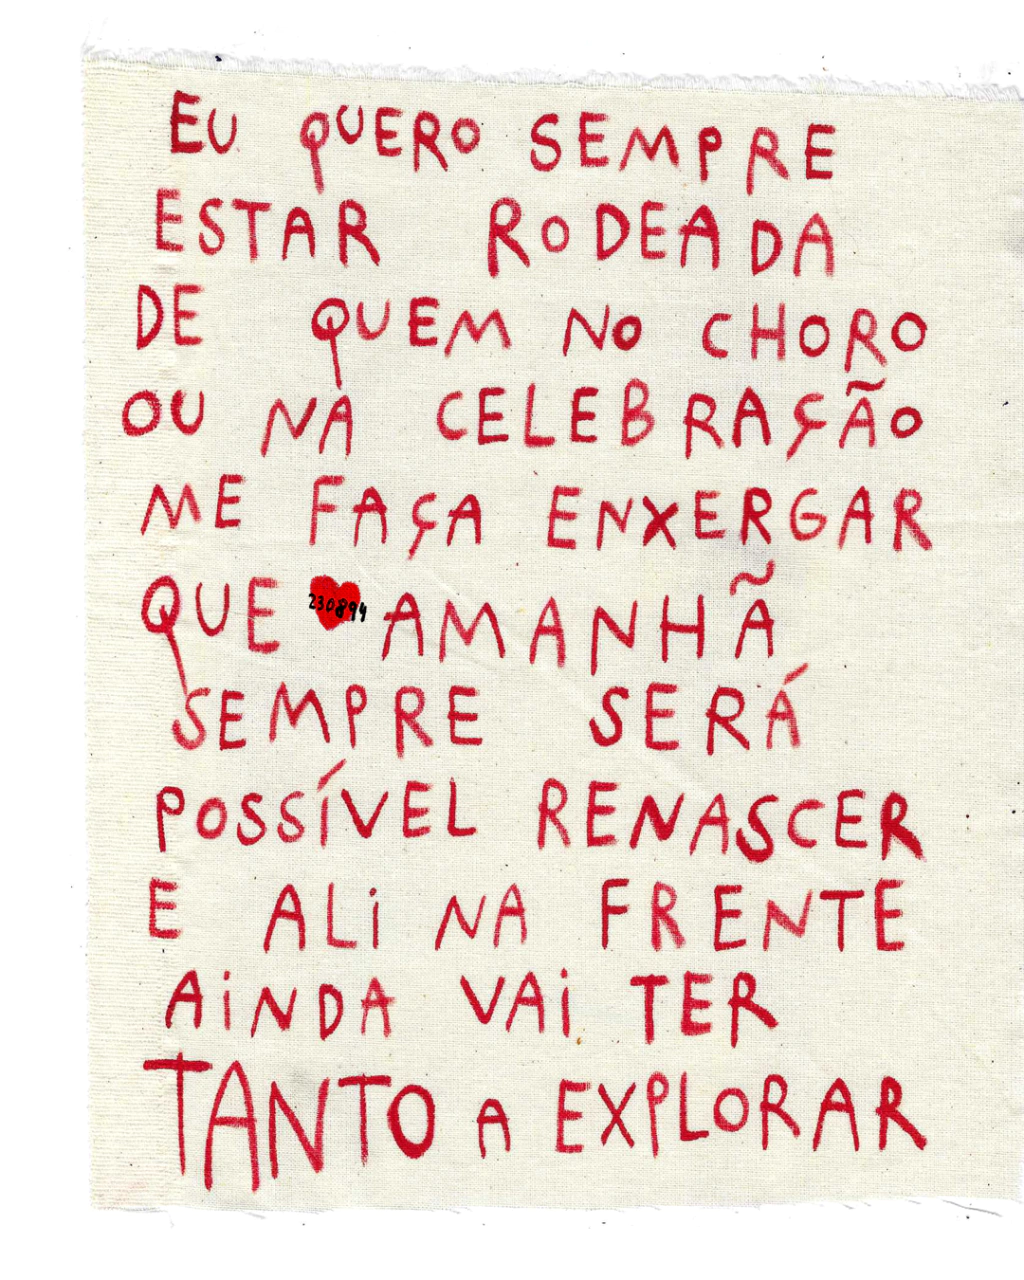 EU QUERO SEMPRE
ESTAR RODEADA
DE QUEM NO CHORO
OU NA CELEBRAÇÃO
ME FAÇA ENXERGAR
QUE 230894 AMANHÃ
SEMPRE SERÁ
POSSÍVEL RENASCER
E ALi NA FRENTE
AiNDA VAi TER
TANTO A EXPLORAR